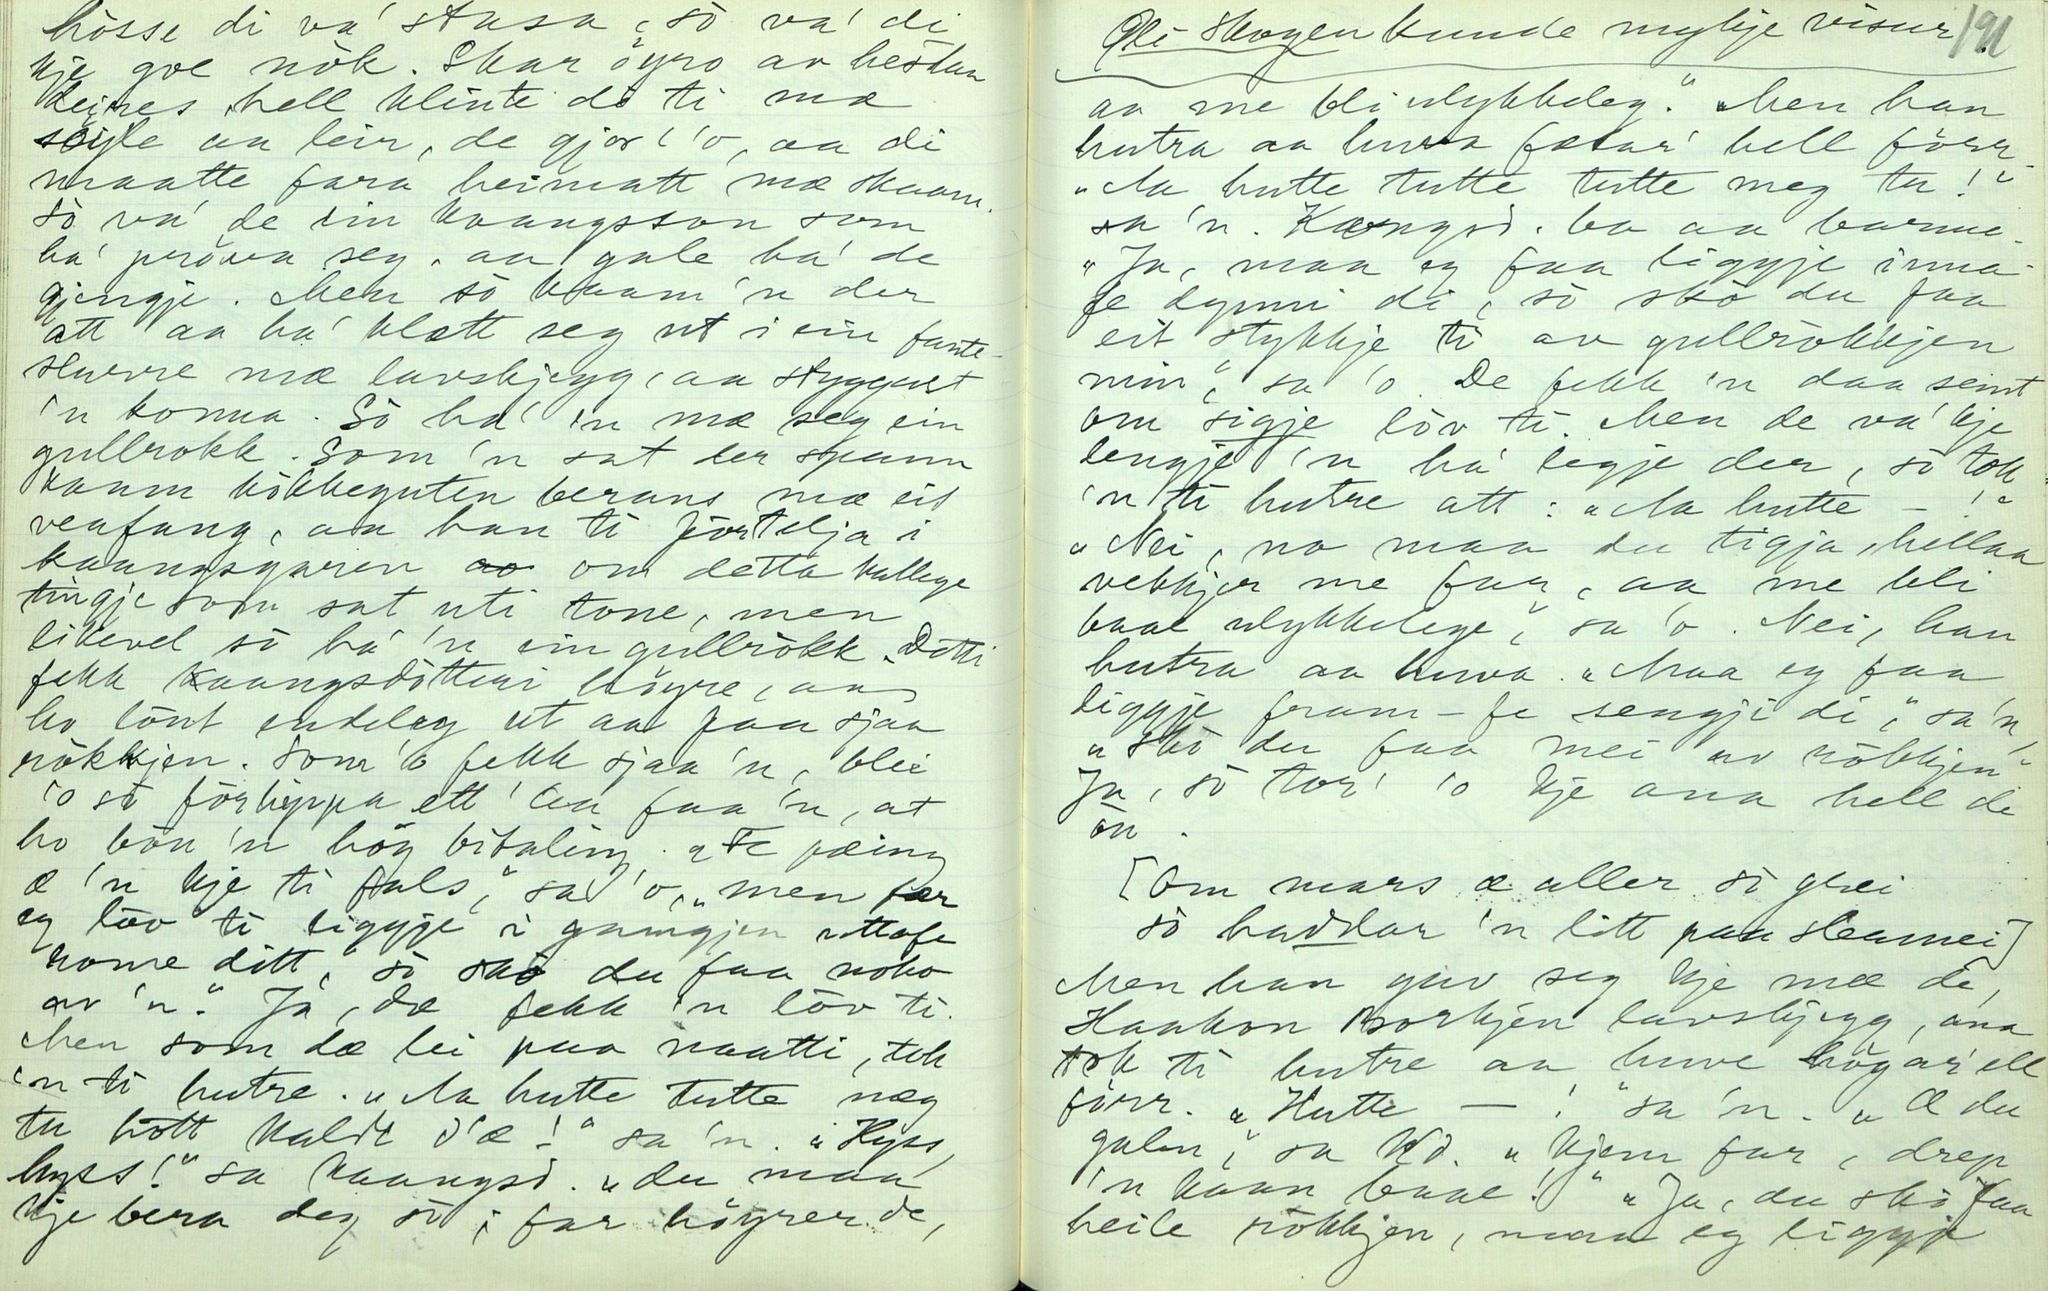 hösse di va' stasa, sò va' di
kje goe nòk. Skar öyro av hestan
deires, hell klinte dò ti mæ
söyle aa leir, de gjor' 'o, aa di
maatte fara heimatt mæ skam.
Sò va' de ein kaangsson som
ha' pröva seg, aa gale ha' de
gjengje. Men sò kaam 'n der
att aa ha' klætt seg ut i ein fante-
slurve mæ lavskjegg, aa styggast
'n konna. Sò ha' 'n mæ seg ein
gullrokk. Som 'n sat der spann
kaam kòkkeguten berans mæ eit
veafang, aa han ti förtelja i
kaangsgaren om detta kallege
tingje som sat uti tone, men
likevel sò ha' 'n ein gullròkk. Detti
fekk kaangsdòtteri höyre, aa
ho lönt endeleg ut aa faa sjaa
ròkkjen. Som 'o fekk sjaa 'n, blei
'o sò förhippa ett' aa faa 'n, at
ho böu 'n hög bitaling. "Fe pæing
æ 'n kje ti fals," sa 'o, "men fær
eg löv ti liggje i gangjen uttafe
rome ditt, sò skò du faa noko
av 'n." Ja, dæ fekk 'n löv ti.
Men som dæ lei paa naatti, tok
'n ti hutre. "Aa hutte tutte næg
tu hòtt kaldt d'æ!" sa 'n. "Hyss,
hyss!" sa kaangsd. "du maa
kje bera deg sò; far höyrer de,
Ole Skogen kunde mykje visur 191
aa me bli ulykkeleg." Men han
hutra aa huva fælar' hell förr.
"Aa hutte tutte tutte meg tu!"
sa 'n. Kaangsd. ba aa barma.
"Ja, maa eg faa liggje inna-
fe dynni di, sò skò du faa
eit stykkje ti av gullròkkjen
min," sa 'o. De fekk 'n daa seint
om sigje löv ti. Men de va' kje
lengje 'n ha' legje der, sò tok
'n ti hutre att: "Aa hutte – !"
"Nei, no maa du tigja, hellaa
vekkjer me far, aa me bli
baae ulykkelege," sa 'o. Nei, han
hutra aa huva. "Maa eg faa
liggje fram-fe sengji di," sa 'n,
"skò du faa mei av ròkkjen"
Ja, sò tor' 'o kje ana hell de
òu.
[Om mars æ aller sò grei
sò haddar 'n litt paa sleamei]
Men han gav seg kje mæ de,
Haakon Borkjen lavskjegg, ana
tok ti hutre aa huve högar' ell
förr. "Hutte – !" sa 'n. "Æ du
galen," sa Kd. "kjem far, drep
'n kaan baae!" "Ja, du skò faa
heile ròkkjen, maa eg liggje